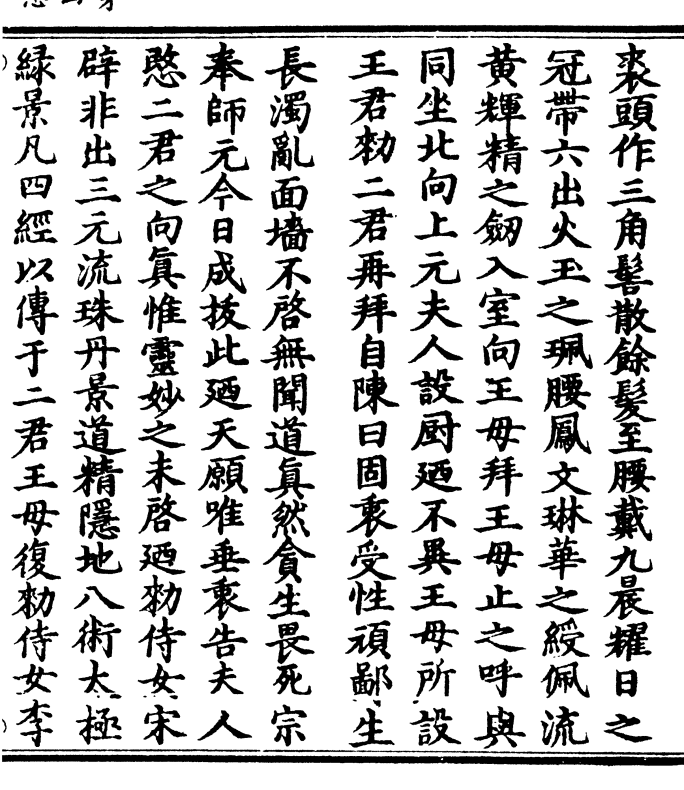 裘頭作三角髻散餘髮至腰戴九晨耀日之
冠帶六出火玉之珮腰鳳文琳華之綬佩流
黃輝精之劒入室向王母拜王母止之呼與
同坐北向上元夫人設廚廼不異王母所設
王君勑二君再拜自陳曰固衷受性頑鄙生
長濁亂面墻不啓無聞道眞然貪生畏死宗
奉師元今日成拔此廼天願唯垂衷告夫人
愍二君之向眞惟靈妙之未啓廼勑侍女宋
辟非出三元流珠丹景道精隱地八術太極
緑景凡四經以傳于二君王母復勑侍女李